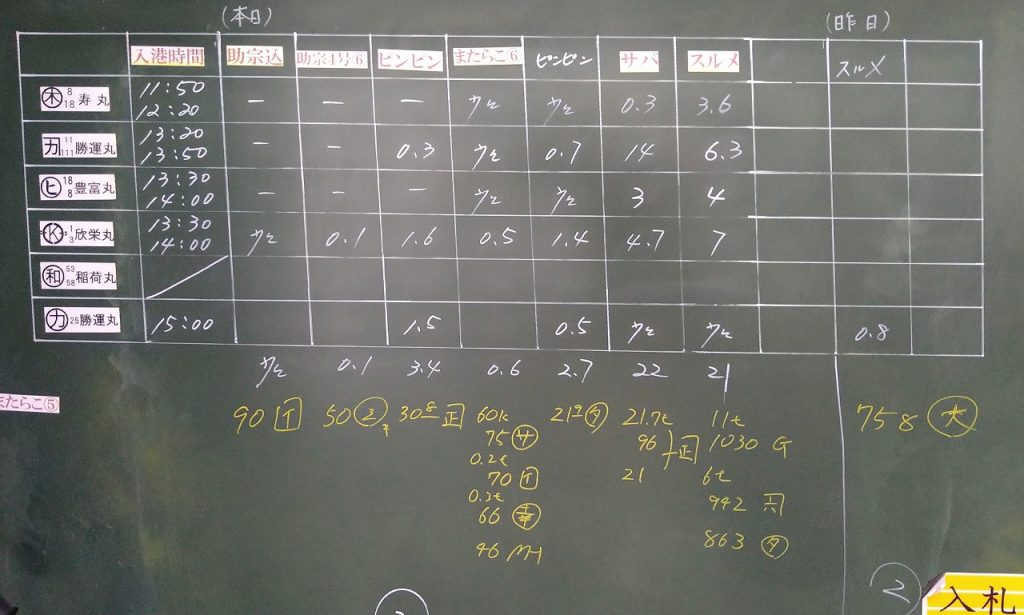 (本日) (昨日)
入港時間 助宗込 助宗4号⑥ ピンピン またらこ⑥ ピンピン サバ スルメ スルメ
㊍ 8 18 寿丸 11:50 12:20 ー ー ー 少々 少々 0.3 3.6
カ 11 111 勝運丸 13:20 13:50 ー ー 0.3 少々 0.7 14 6.3
ヒ 18 8 豊富丸 13:30 14:00 ー ー ー 少々 少々 3 4
K 1 3 欣栄丸 13:30 14:00 少々 0.1 1.6 0.5 1.4 4.7 7
和 53 58 稲荷丸
カ 25 勝運丸 15:00 1.5 0.5 少々 少々 0.8
少々 0.1 3.4 0.6 2.7 22 21
またらこ⑤
90 50 30 正 60k 21 タ 21.7t 11t 758 大
75 サ 96 正 1030 G
0.2t 21 6t
70
0.3t 942
66
863 タ
46
2
入札